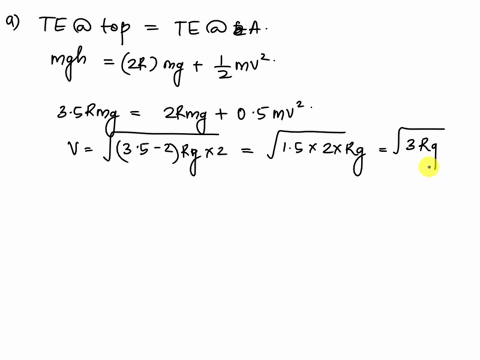 a) TE @ top = TE @ A.
mgh = (2R) mg + 1/2 mv².
3.5Rmg = 2Rmg + 0.5 mv².
V = √(3.5-2)Rg×2 = √1.5×2×Rg = √3Rg